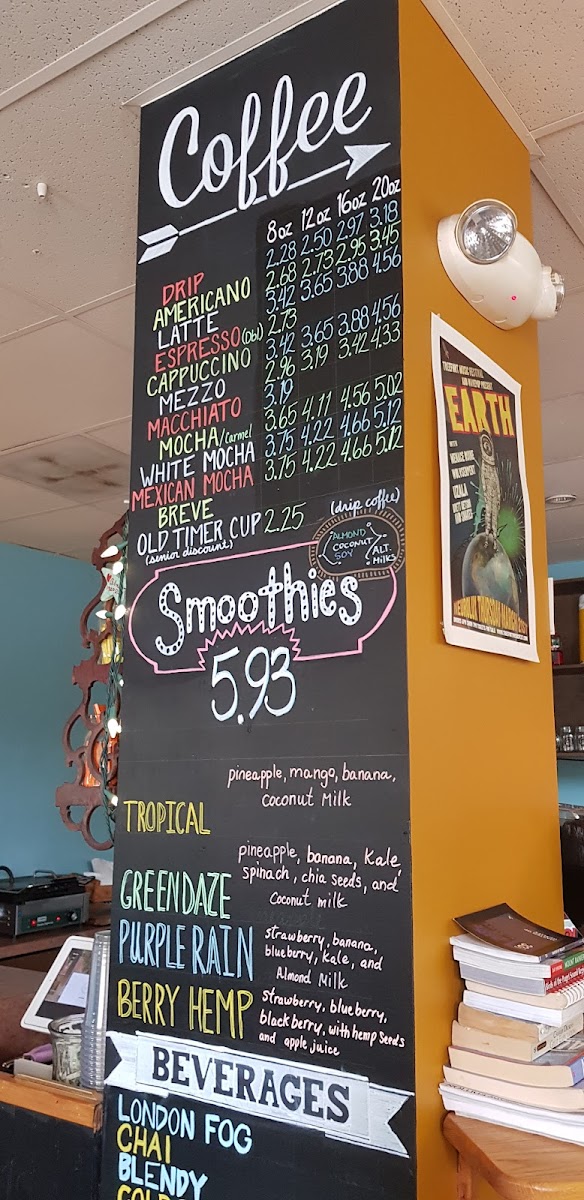 Coffee
8oz 12oz 16oz 20oz
DRIP 2.28 2.50 2.97 3.18
AMERICANO 2.68 2.73 2.95 3.45
LATTE 3.42 3.65 3.88 4.56
ESPRESSO (Dbl) 2.73
CAPPUCCINO 3.42 3.65 3.88 4.56
MEZZO 2.96 3.19 3.42 4.33
MACCHIATO 3.19
MOCHA/Carmel 3.65 4.11 4.56 5.02
WHITE MOCHA 3.75 4.22 4.66 5.12
MEXICAN MOCHA 3.75 4.22 4.66 5.12
BREVE
OLD TIMER CUP 2.25 (drip coffee)
(senior discount)
ALMOND
COCONUT
SOY
ALT.
MILKS
Smoothies
5.93
TROPICAL
pineapple, mango, banana,
coconut Milk
GREEN DAZE
pineapple, banana, Kale,
spinach, chia seeds, and
Coconut milk
PURPLE RAIN
strawberry, banana,
blueburry, kale, and
Almond Milk
BERRY HEMP
strawberry, blueberry,
blackberry, with hemp Seeds
and apple juice
BEVERAGES
LONDON FOG
CHAI
BLENDY
TREEFORT MUSIC FESTIVAL
EARTH
WITH